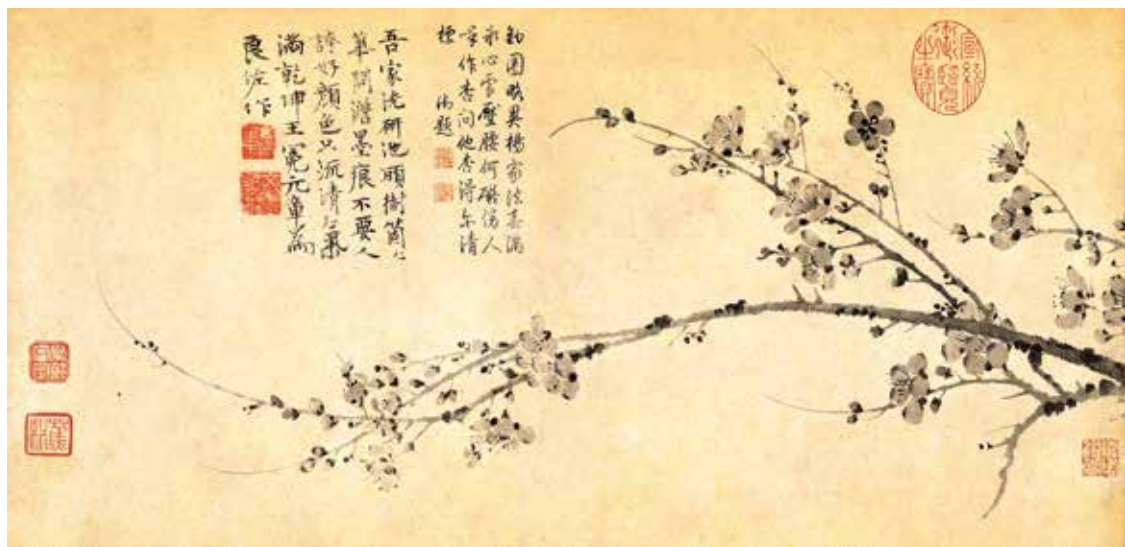 宣統御覽之寶
鈎圈略異楊家法春滿
冰心雪壓腰何礙傍人
呼作杏問他杏得尔清
標 御題
吾家洗研池頭樹箇〻
華開澹墨痕不要人
誇好顏色只流清氣
滿乾坤王冕元章為
良佐作